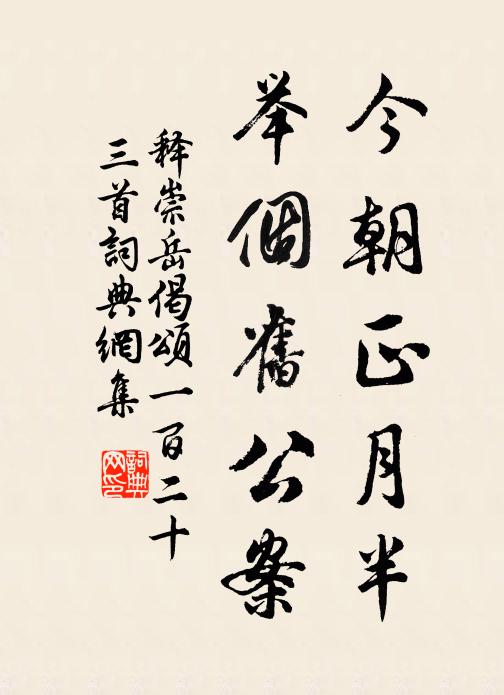 今朝正月半
举個舊公案
释崇岳偈頌一百二十
三首詞典網集
詞典
网印